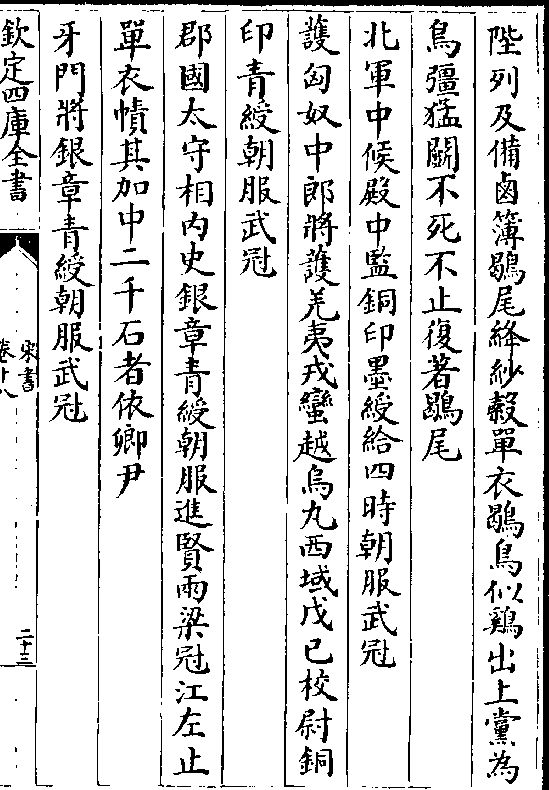 陛列及備鹵簿鶡尾絳紗縠單衣鶡鳥似鷄出上黨為
鳥彊猛鬭不死不止復著鶡尾
北軍中候殿中監銅印墨綬給四時朝服武冠
護匈奴中郎將護羌夷戎蠻越烏丸西域戊己校尉銅
印青綬朝服武冠
郡國太守相內史銀章青綬朝服進賢兩梁冠江左止
單衣幘其加中二千石者依卿尹
牙門將銀章青綬朝服武冠
欽定四庫全書
宋書
卷十八
二十三